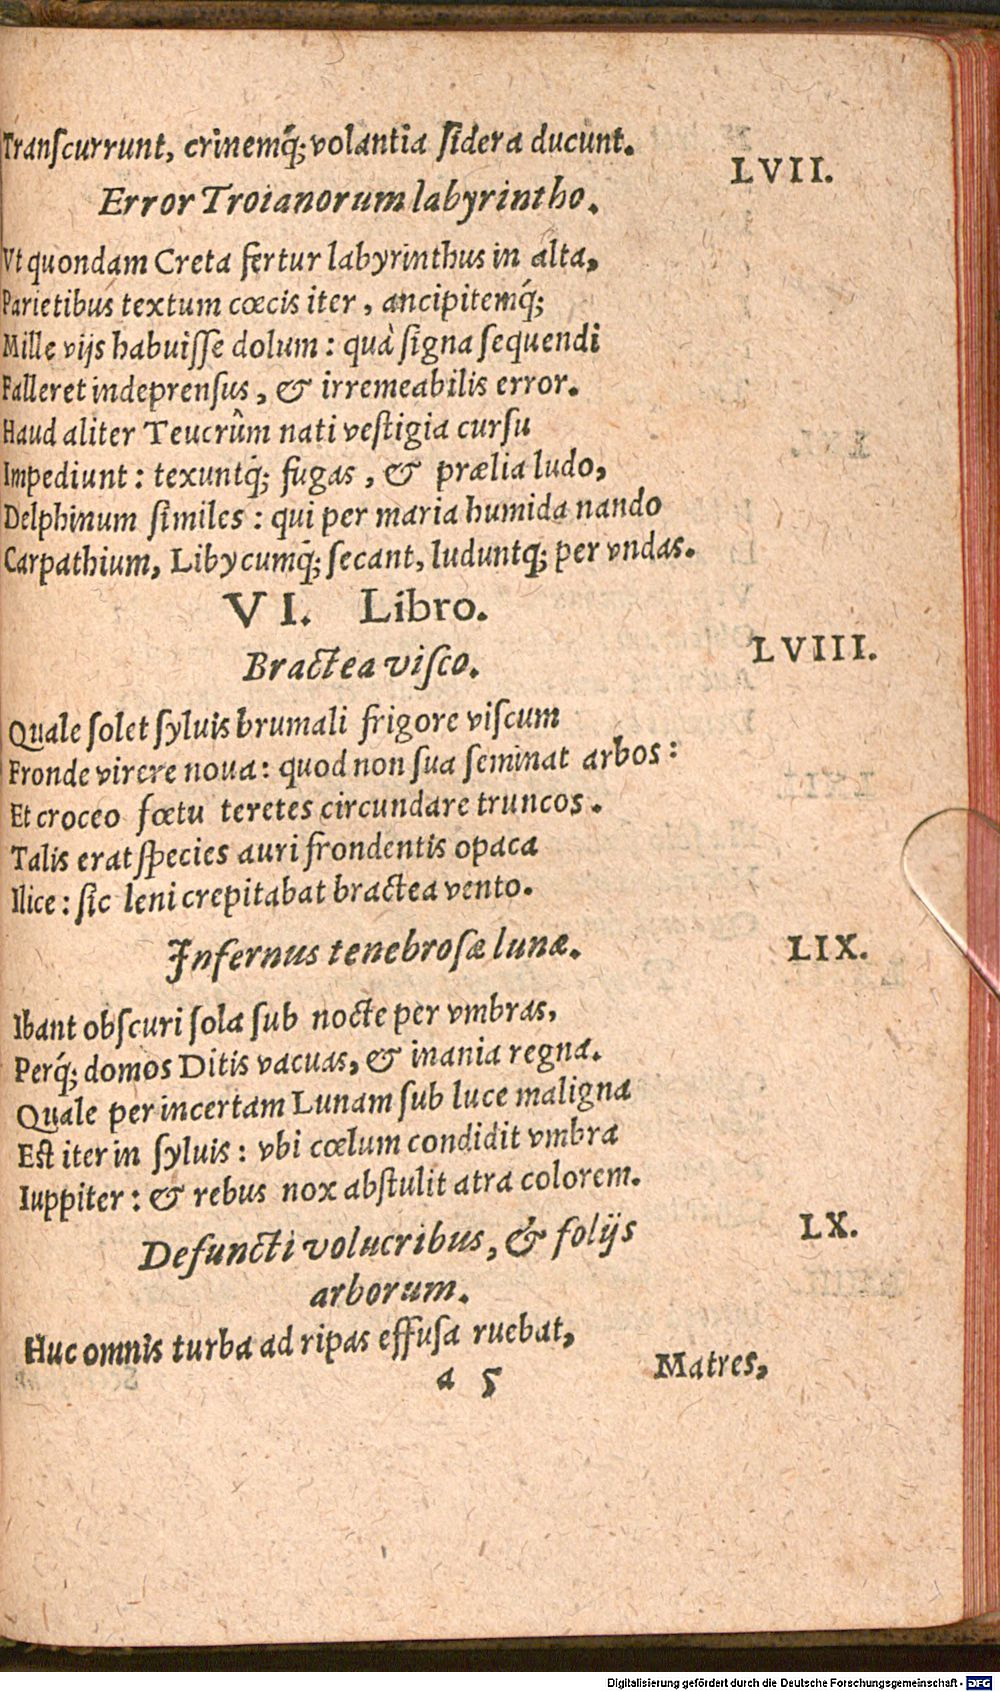 Tranſcurrunt, crinemq́; volantia ſidera ducunt.
LVII.
Error Troianorum labyrintho.
Vt quondam Creta fertur labyrinthus in alta,
Parietibus textum cœcis iter, ancipitemq́;
Mille vijs habuiſſe dolum: quà ſigna ſequendi
Falleret indeprenſus, & irremeabilis error.
Haud aliter Teucrûm nati veſtigia curſu
Impediunt: texuntq́; fugas, & prælia ludo,
Delphinum ſimiles: qui per maria humida nando
Carpathium, Libycumq́; ſecant, luduntq́; per vndas.
VI. Libro.
Bractea viſco.
LVIII.
Quale ſolet ſyluis brumali frigore viſcum
Fronde virere noua: quod non ſua ſeminat arbos:
Et croceo fœtu teretes circundare truncos.
Talis erat ſpecies auri frondentis opaca
Ilice: ſic leni crepitabat bractea vento.
Infernus tenebroſæ lunæ.
LIX.
Ibant obſcuri ſola ſub nocte per vmbras,
Perq́; domos Ditis vacuas, & inania regna.
Quale per incertam Lunam ſub luce maligna
Eſt iter in ſyluis: vbi cœlum condidit vmbra
Iuppiter: & rebus nox abſtulit atra colorem.
Defuncti volucribus, & folijs
arborum.
LX.
Huc omnis turba ad ripas effuſa ruebat,
a 5
Matres,
Digitalisierung gefördert durch die Deutsche Forschungsgemeinschaft - DFG